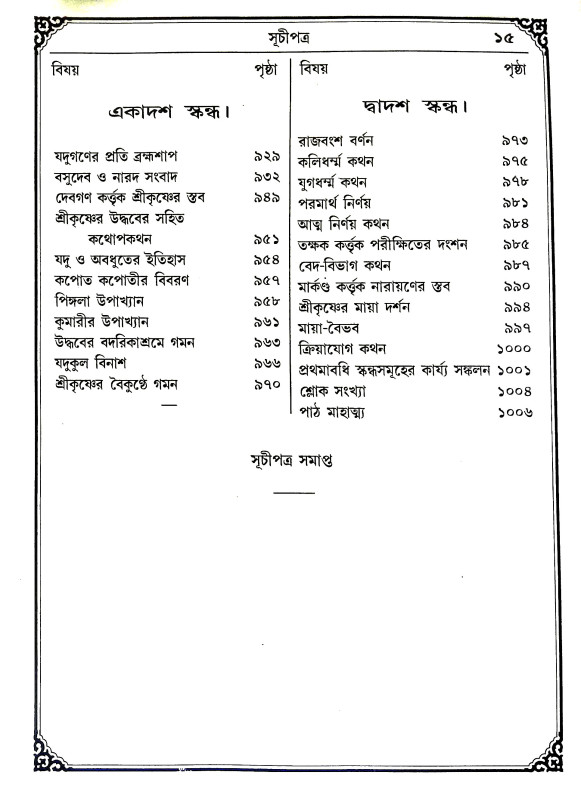 সূচীপত্র ১৫
বিষয় পৃষ্ঠা
একাদশ স্কন্ধ।
যদুগণের প্রতি ব্রহ্মশাপ ৯২৯
বসুদেব ও নারদ সংবাদ ৯৩২
দেবগণ কর্ত্তৃক শ্রীকৃষ্ণের স্তব ৯৪৯
শ্রীকৃষ্ণের উদ্ধবের সহিত
কথোপকথন ৯৫১
যদু ও অবধুতের ইতিহাস ৯৫৪
কপোত কপোতীর বিবরণ ৯৫৭
পিঙ্গলা উপাখ্যান ৯৫৮
কুমারীর উপাখ্যান ৯৬১
উদ্ধবের বদরিকাশ্রমে গমন ৯৬৩
যদুকুল বিনাশ ৯৬৬
শ্রীকৃষ্ণের বৈকুণ্ঠে গমন ৯৭০
বিষয় পৃষ্ঠা
দ্বাদশ স্কন্ধ।
রাজবংশ বর্ণন ৯৭৩
কলিধর্ম্ম কথন ৯৭৫
যুগধর্ম্ম কথন ৯৭৮
পরমার্থ নির্ণয় ৯৮১
আত্ম নির্ণয় কথন ৯৮৪
তক্ষক কর্ত্তৃক পরীক্ষিতের দংশন ৯৮৫
বেদ-বিভাগ কথন ৯৮৭
মার্কণ্ড কর্ত্তৃক নারায়ণের স্তব ৯৯০
শ্রীকৃষ্ণের মায়া দর্শন ৯৯৪
মায়া-বৈভব ৯৯৭
ক্রিয়াযোগ কথন ১০০০
প্রথমাবধি স্কন্ধসমূহের কার্য্য সঙ্কলন ১০০১
শ্লোক সংখ্যা ১০০৪
পাঠ মাহাত্ম্য ১০০৬
সূচীপত্র সমাপ্ত